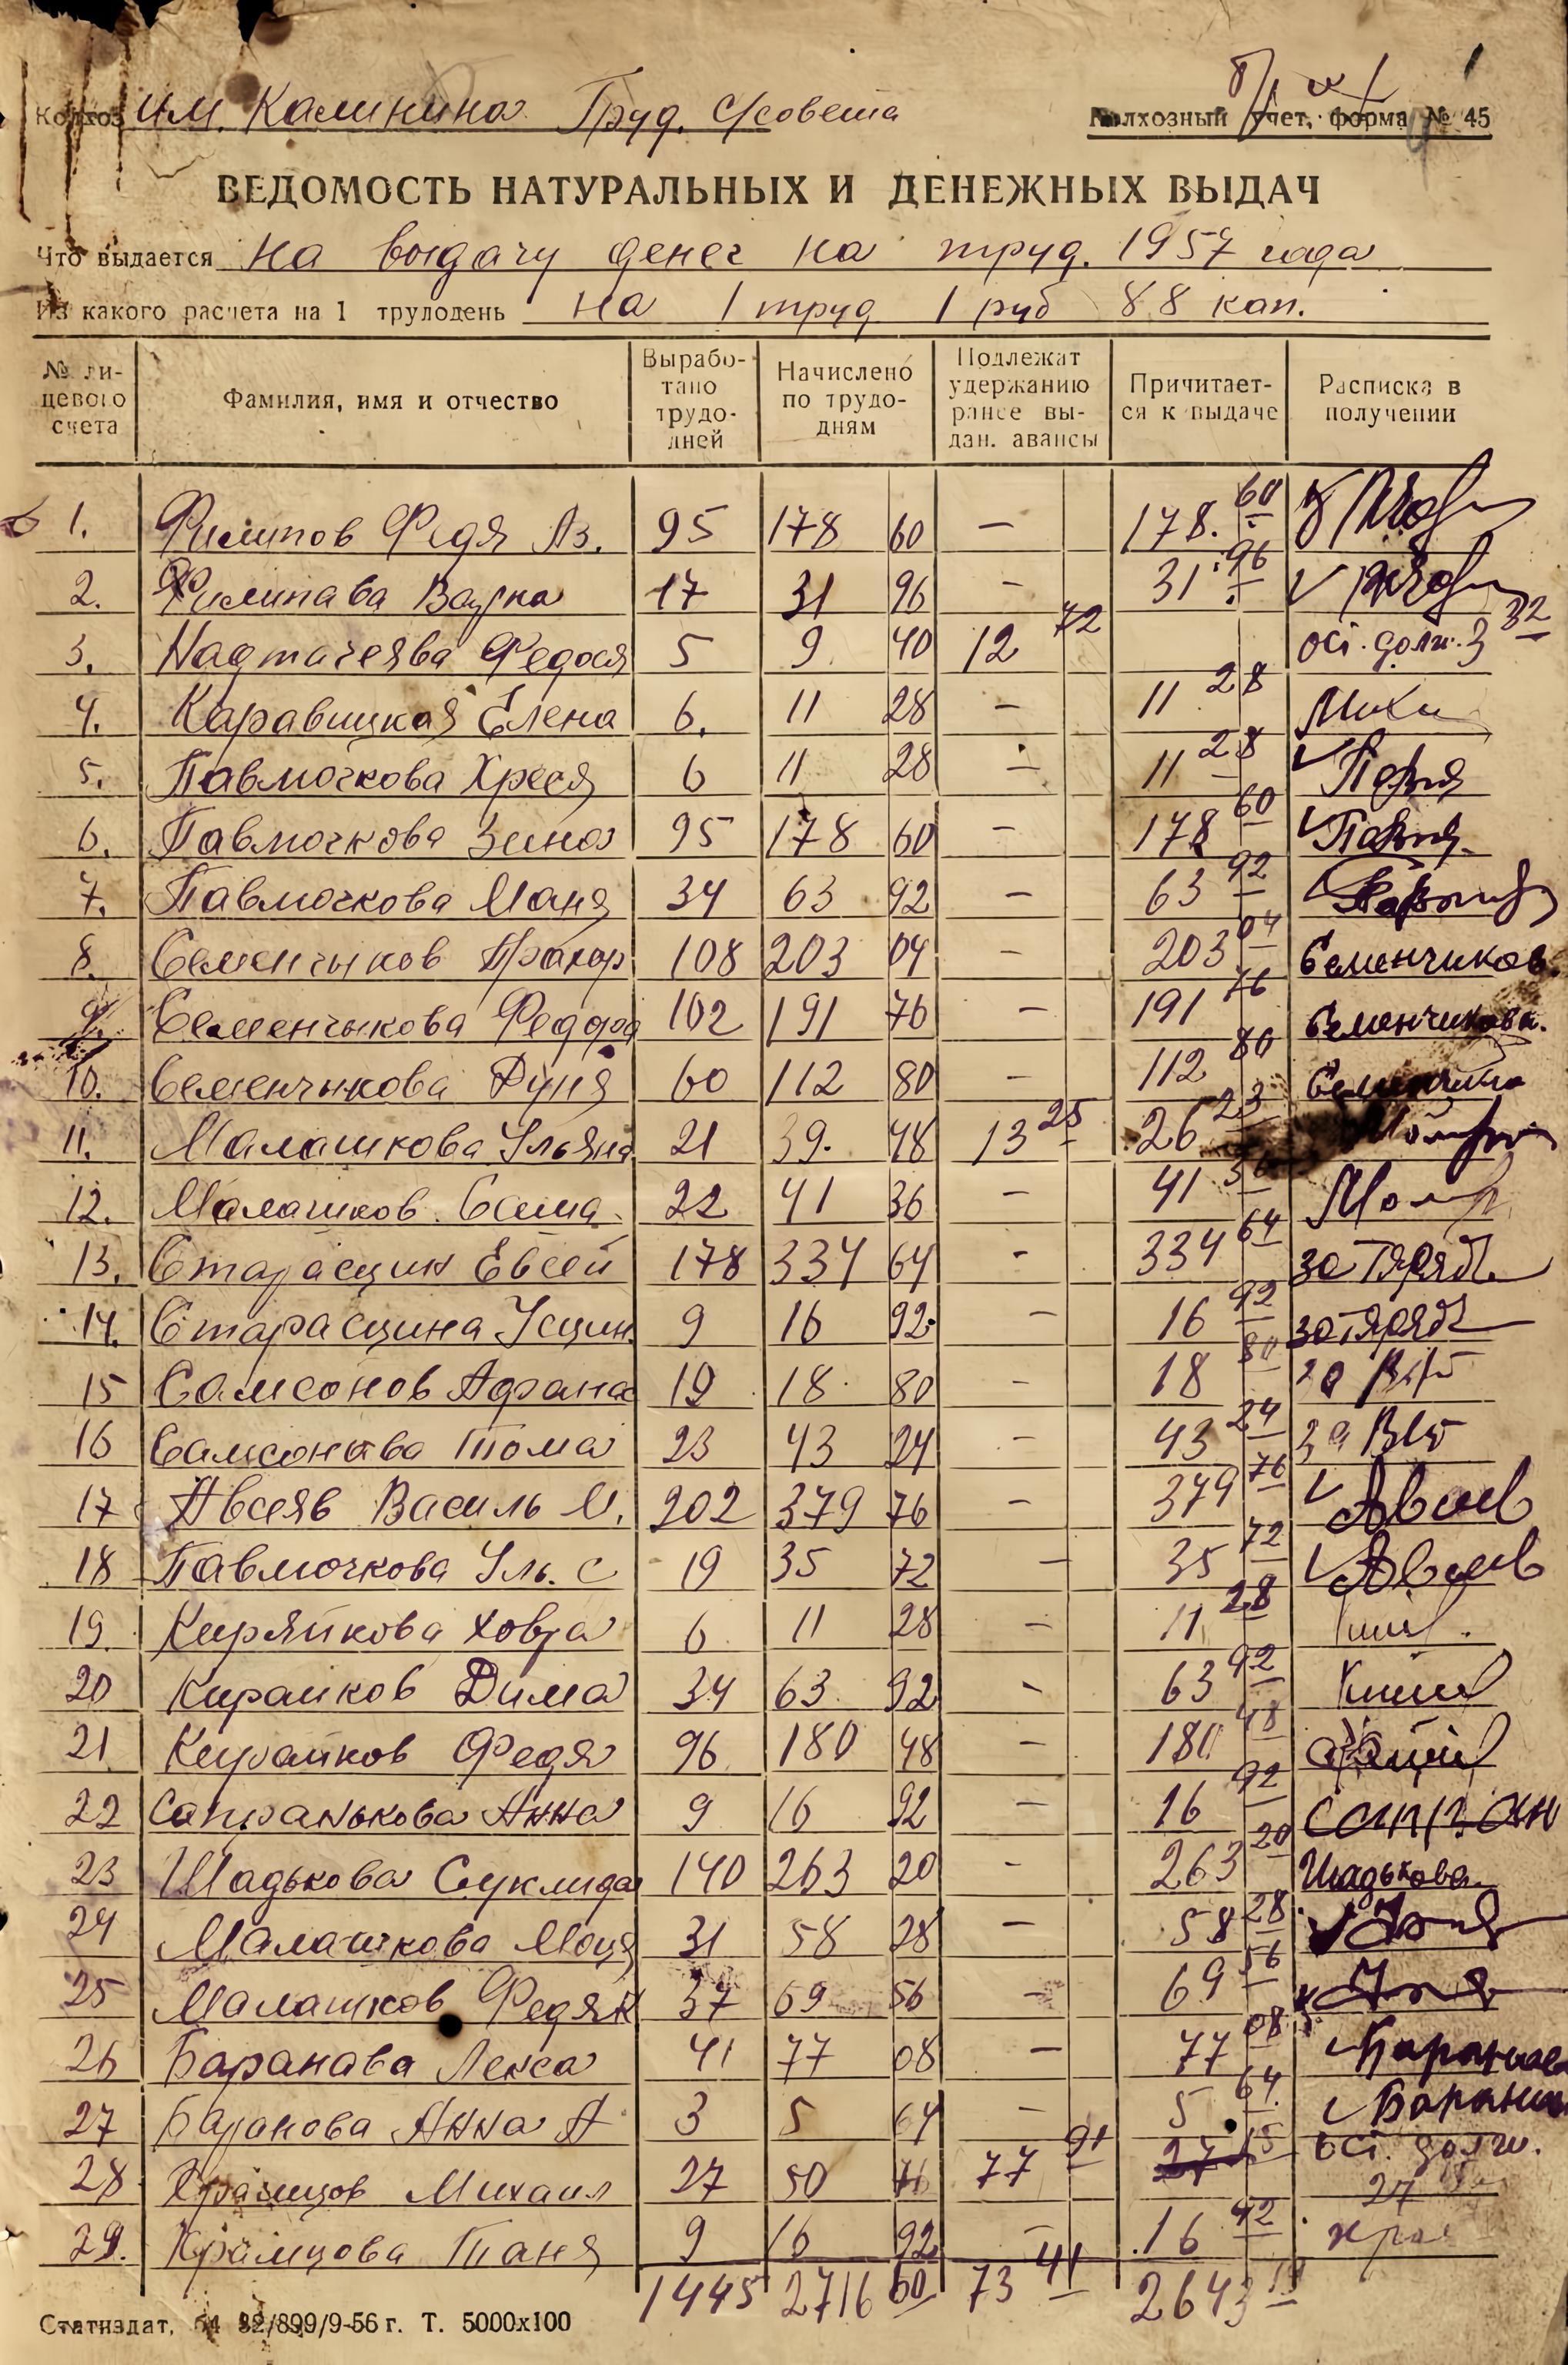 Колхоз им. Калинина Груд. с/совета
Колхозный учет, форма № 45
ВЕДОМОСТЬ НАТУРАЛЬНЫХ И ДЕНЕЖНЫХ ВЫДАЧ
Что выдается На выдачу денег на труд. 1957 года
Из какого расчета на 1 трудодень на 1 труд 1 руб 88 коп.
№ ли-
цевого
счета
Фамилия, имя и отчество
Вырабо-
тано
трудо-
дней
Начислено
по трудо-
дням
Подлежат
удержанию
ранее вы-
дан. авансы
Причитает-
ся к выдаче
Расписка в
получении
1. Филипов Федя Аз. 95 178 60 — 178. 60
2. Филипава Валька 17 31 96 — 31 96
3. Надтачеява Федося 5 9 40 12 72 ост. долж. 3 32
4. Каравицкая Елена 6. 11 28 — 11 28
5. Павлючкова Хреся 6 11 28 — 11 28
6. Павлючкова Зина 95 178 60 — 178 60
7. Павлючкова Маня 34 63 92 — 63 92
8. Семенчыков Прахор 108 203 04 — 203 04 Семенчиков.
9. Семенчыкова Федора 102 191 76 — 191 76 Семенчикова.
10. Семенчыкова Дуня 60 112 80 — 112 80
11. Малашкова Ульяна 21 39. 48 13 25 26 23
12. Малашков Сема 22 41 36 — 41 36
13. Старасцин Евсей 178 334 64 - 334 64
14. Старасцина Усцин. 9 16 92 — 16 92
15 Самсонов Афанас 10 18 80 — 18 80
16 Самсонава Тома 23 43 24 — 43 24
17 Авсеяв Василь М. 202 379 76 — 379 76
18 Павлючкова Уль. С 19 35 72 — 35 72
19. Киряйкова Ховра 6 11 28 — 11 28
20 Кирайков Дима 34 63 92 - 63 92
21 Кирайков Федя 96 180 48 — 180 48
22 Сапранькова Анна 9 16 92 — 16 92
23 Шадькова Суклида 140 263 20 - 263 20 Шадькова
24 Малашкова Моця 31 58 28 — 58 28
25 Малашков Федяк 37 69 56 — 69 56
26 Баранава Лекса 41 77 08 — 77 08
27 Баранова Анна А 3 5 64 — 5 64.
28 Храмцов Михаил 27 50 76 77 91 27 15 ост. долж. 27
29. Храмцова Таня 9 16 92 — 16 92
1445 2716 60 73 41 2643
Статиздат, 32/899/9-56 г. Т. 5000х100